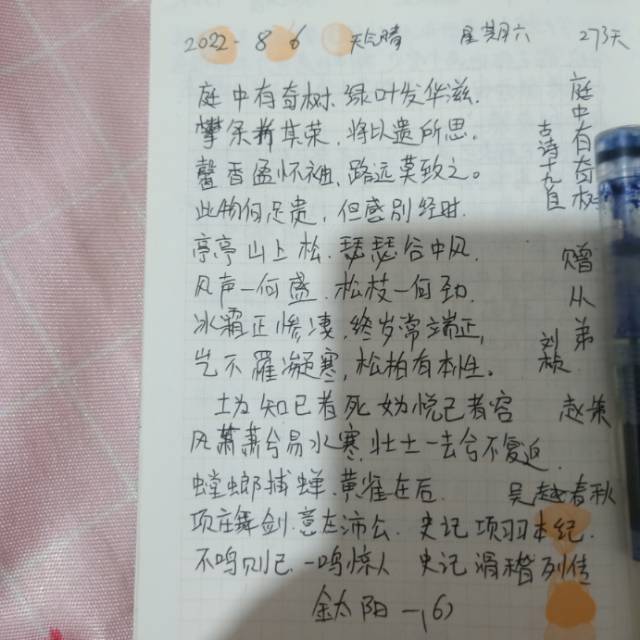 2022-8 6 天气晴 星期六 273天
庭中有奇树.绿叶发华滋.
攀条折其荣,将以遗所思.
馨香盈怀袖,路远莫致之。
此物何足贵,但感别经时.
庭中有奇树
古诗十九首
亭亭山上松.瑟瑟谷中风.
风声一何盛.松枝一何劲.
冰霜正惨凄,终岁常端正,
岂不罹凝寒,松柏有本性。
赠从弟
刘桢
士为知己者死 女为悦己者容 赵策
风萧萧兮易水寒.壮士一去兮不复返.
螳螂捕蝉.黄雀在后. 吴越春秋
项庄舞剑.意在沛公. 史记 项羽本纪.
不鸣则已 一鸣惊人 史记 滑稽列传
太阳一(6)